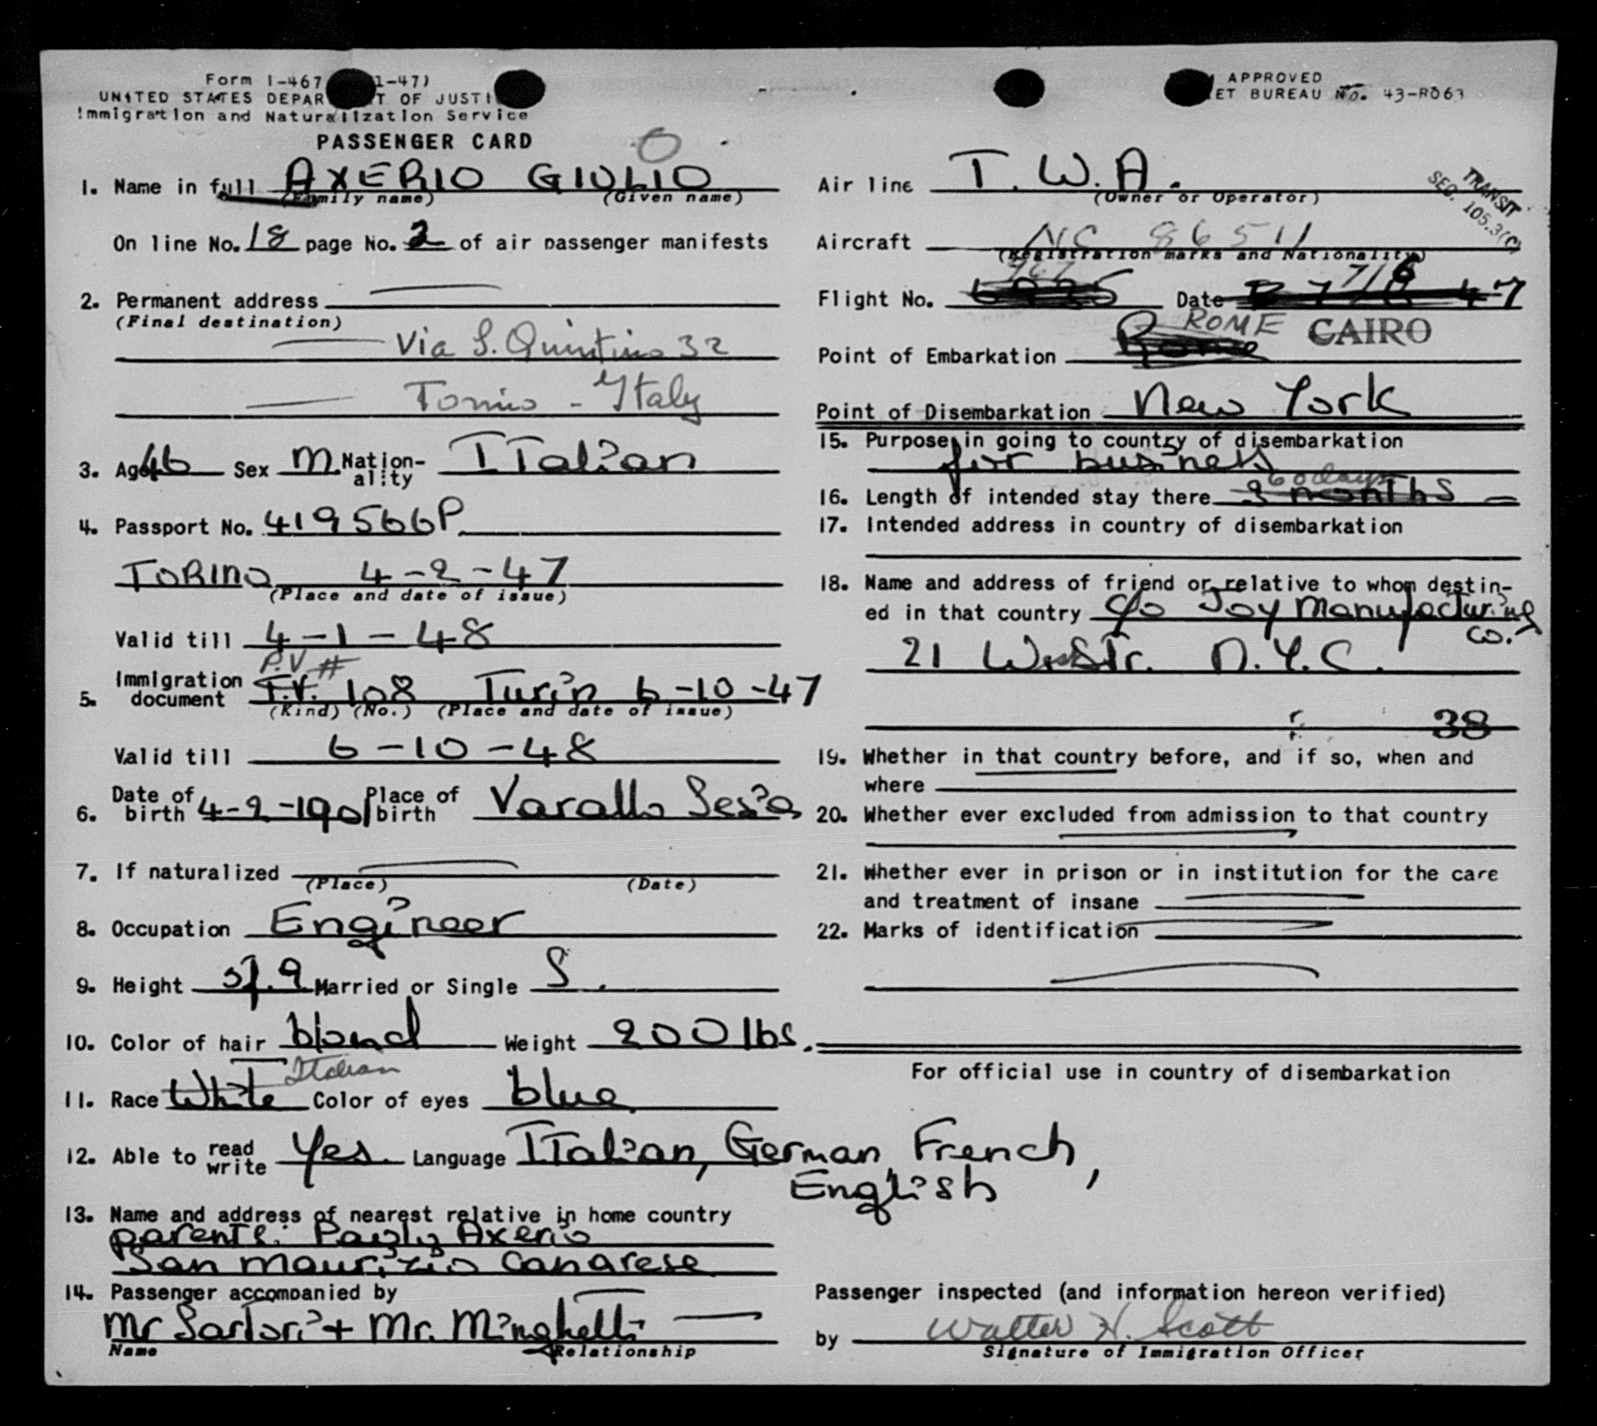 Form I-467 1-47)
UNITED STATES DEPAR T OF JUSTI
Immigration and Naturalization Service
PASSENGER CARD
APPROVED
ET BUREAU No. 43-R063
1. Name in full AXERIO GIULIO
(Family name) (Given name)
On line No. 18 page No. 2 of air passenger manifests
2. Permanent address
(Final destination)
Via S. Quintino 32
Torino - Italy
3. Age 46 Sex M. Nation-ality ITalian
4. Passport No. 419566P
TORINO 4-2-47
(Place and date of issue)
Valid till 4-1-48
P.V #
5. Immigration document T.V. 108 Turin 6-10-47
(Kind) (No.) (Place and date of issue)
Valid till 6-10-48
6. Date of birth 4-2-1901 Place of birth Varallo Sesia
7. If naturalized
(Place) (Date)
8. Occupation Engineer
9. Height 5f.9 Married or Single S.
10. Color of hair blond Weight 200 lbs.
Italian
11. Race White Color of eyes blue
12. Able to read write Yes. Language ITalian, German French,
English
13. Name and address of nearest relative in home country
parents: Paolo Axerio
San Maurizio Canarese
14. Passenger accompanied by
Mr Sartori + Mr. Minghetti
Name Relationship
Air line T.W.A.
(Owner or Operator)
TRANSIT
SEC. 105.3(C)
Aircraft NC 86511
(Registration marks and Nationality)
967 7/6
Flight No. 6935 Date 47
ROME CAIRO
Point of Embarkation Rome
Point of Disembarkation New York
15. Purpose in going to country of disembarkation
for business
60 days
16. Length of intended stay there 3 months
17. Intended address in country of disembarkation
18. Name and address of friend or relative to whom destin-
ed in that country c/o Joy Manufacturing
Co.
21 West Str. N.Y.C.
38
19. Whether in that country before, and if so, when and
where
20. Whether ever excluded from admission to that country
21. Whether ever in prison or in institution for the care
and treatment of insane
22. Marks of identification
For official use in country of disembarkation
Passenger inspected (and information hereon verified)
by Walter H. Scott
Signature of Immigration Officer